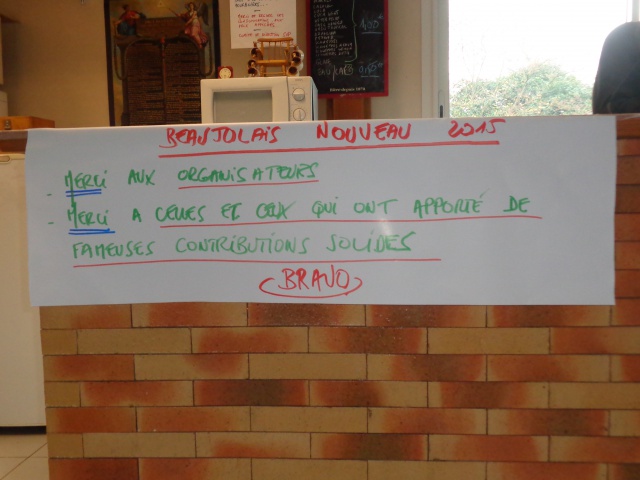 BEAUJOLAIS NOUVEAU 2015
- MERCI AUX ORGANISATEURS
- MERCI A CELLES ET CEUX QUI ONT APPORTÉ DE
FAMEUSES CONTRIBUTIONS SOLIDES
BRAVO